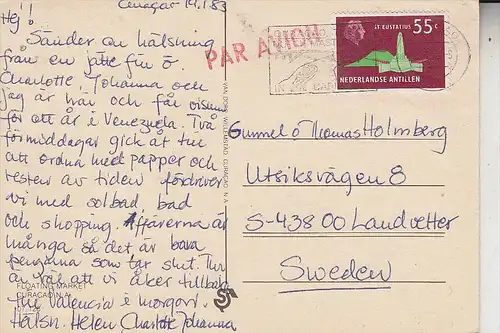 Curaçao 19.1.83
Hej!
Sänder en hälsning
från en jätte fin ö.
Charlotte, Johanna och
jag är här och får visum
för att åka i Venezuela. Två
förmiddagar gick åt till
att ordna med papper och
resten av tiden fördriver
vi med solbad, bad
och shopping. Affärerna är
många så det är bara
pengarna som tar slut.
att vi åker tillbaka
Valencia i morgon.
Hälsn. Helen Charlotte Johanna
FLOATING MARKET
CURACAO N.A.
VAN DORP WILLEMSTAD CURACAO N A
PAR AVION
ST EUSTATIUS 55c
NEDERLANDSE ANTILLEN
Gunnel o Thomas Holmberg
Utsiksvägen 8
S-438 00 Landvetter
Sweden